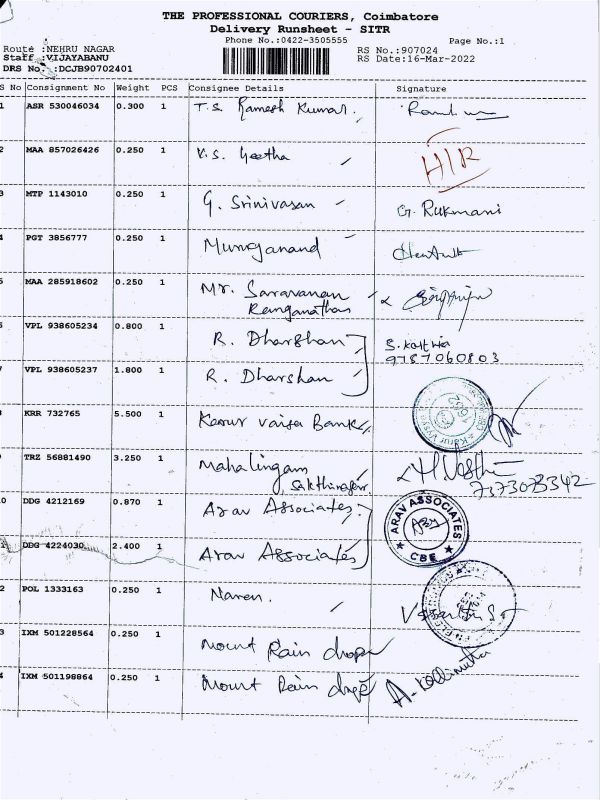 THE PROFESSIONAL COURIERS, Coimbatore
Delivery Runsheet - SITR
Phone No.:0422-3505555 Page No.:1
Route :NEHRU NAGAR RS No.:907024
Staff :VIJAYABANU RS Date:16-Mar-2022
DRS No. :DCJB90702401
S No Consignment No Weight PCS Consignee Details Signature
1 ASR 530046034 0.300 1 T.S. Ramesh Kumar.
2 MAA 857026426 0.250 1 V.S. Geetha H/R
3 MTP 1143010 0.250 1 G. Srinivasan G. Rukmani
4 PGT 3856777 0.250 1 Muruganand
5 MAA 285918602 0.250 1 Mr. Saravanan
Ranganathan
6 VPL 938605234 0.800 1 R. Dharshan S.
9787060803
7 VPL 938605237 1.800 1 R. Dharshan
8 KRR 732765 5.500 1 Karur vaisa Bank
9 TRZ 56881490 3.250 1 Mahalingam
Sakthinagar
7373073342
10 DDG 4212169 0.870 1 Arav Associates
ARAV ASSOCIATES
CBE
11 DDG 4224030 2.400 1 Arav Associates
12 POL 1333163 0.250 1 Naren.
13 IXM 501228564 0.250 1 Mount Rain drops
14 IXM 501198864 0.250 1 Mount Rain drops A.